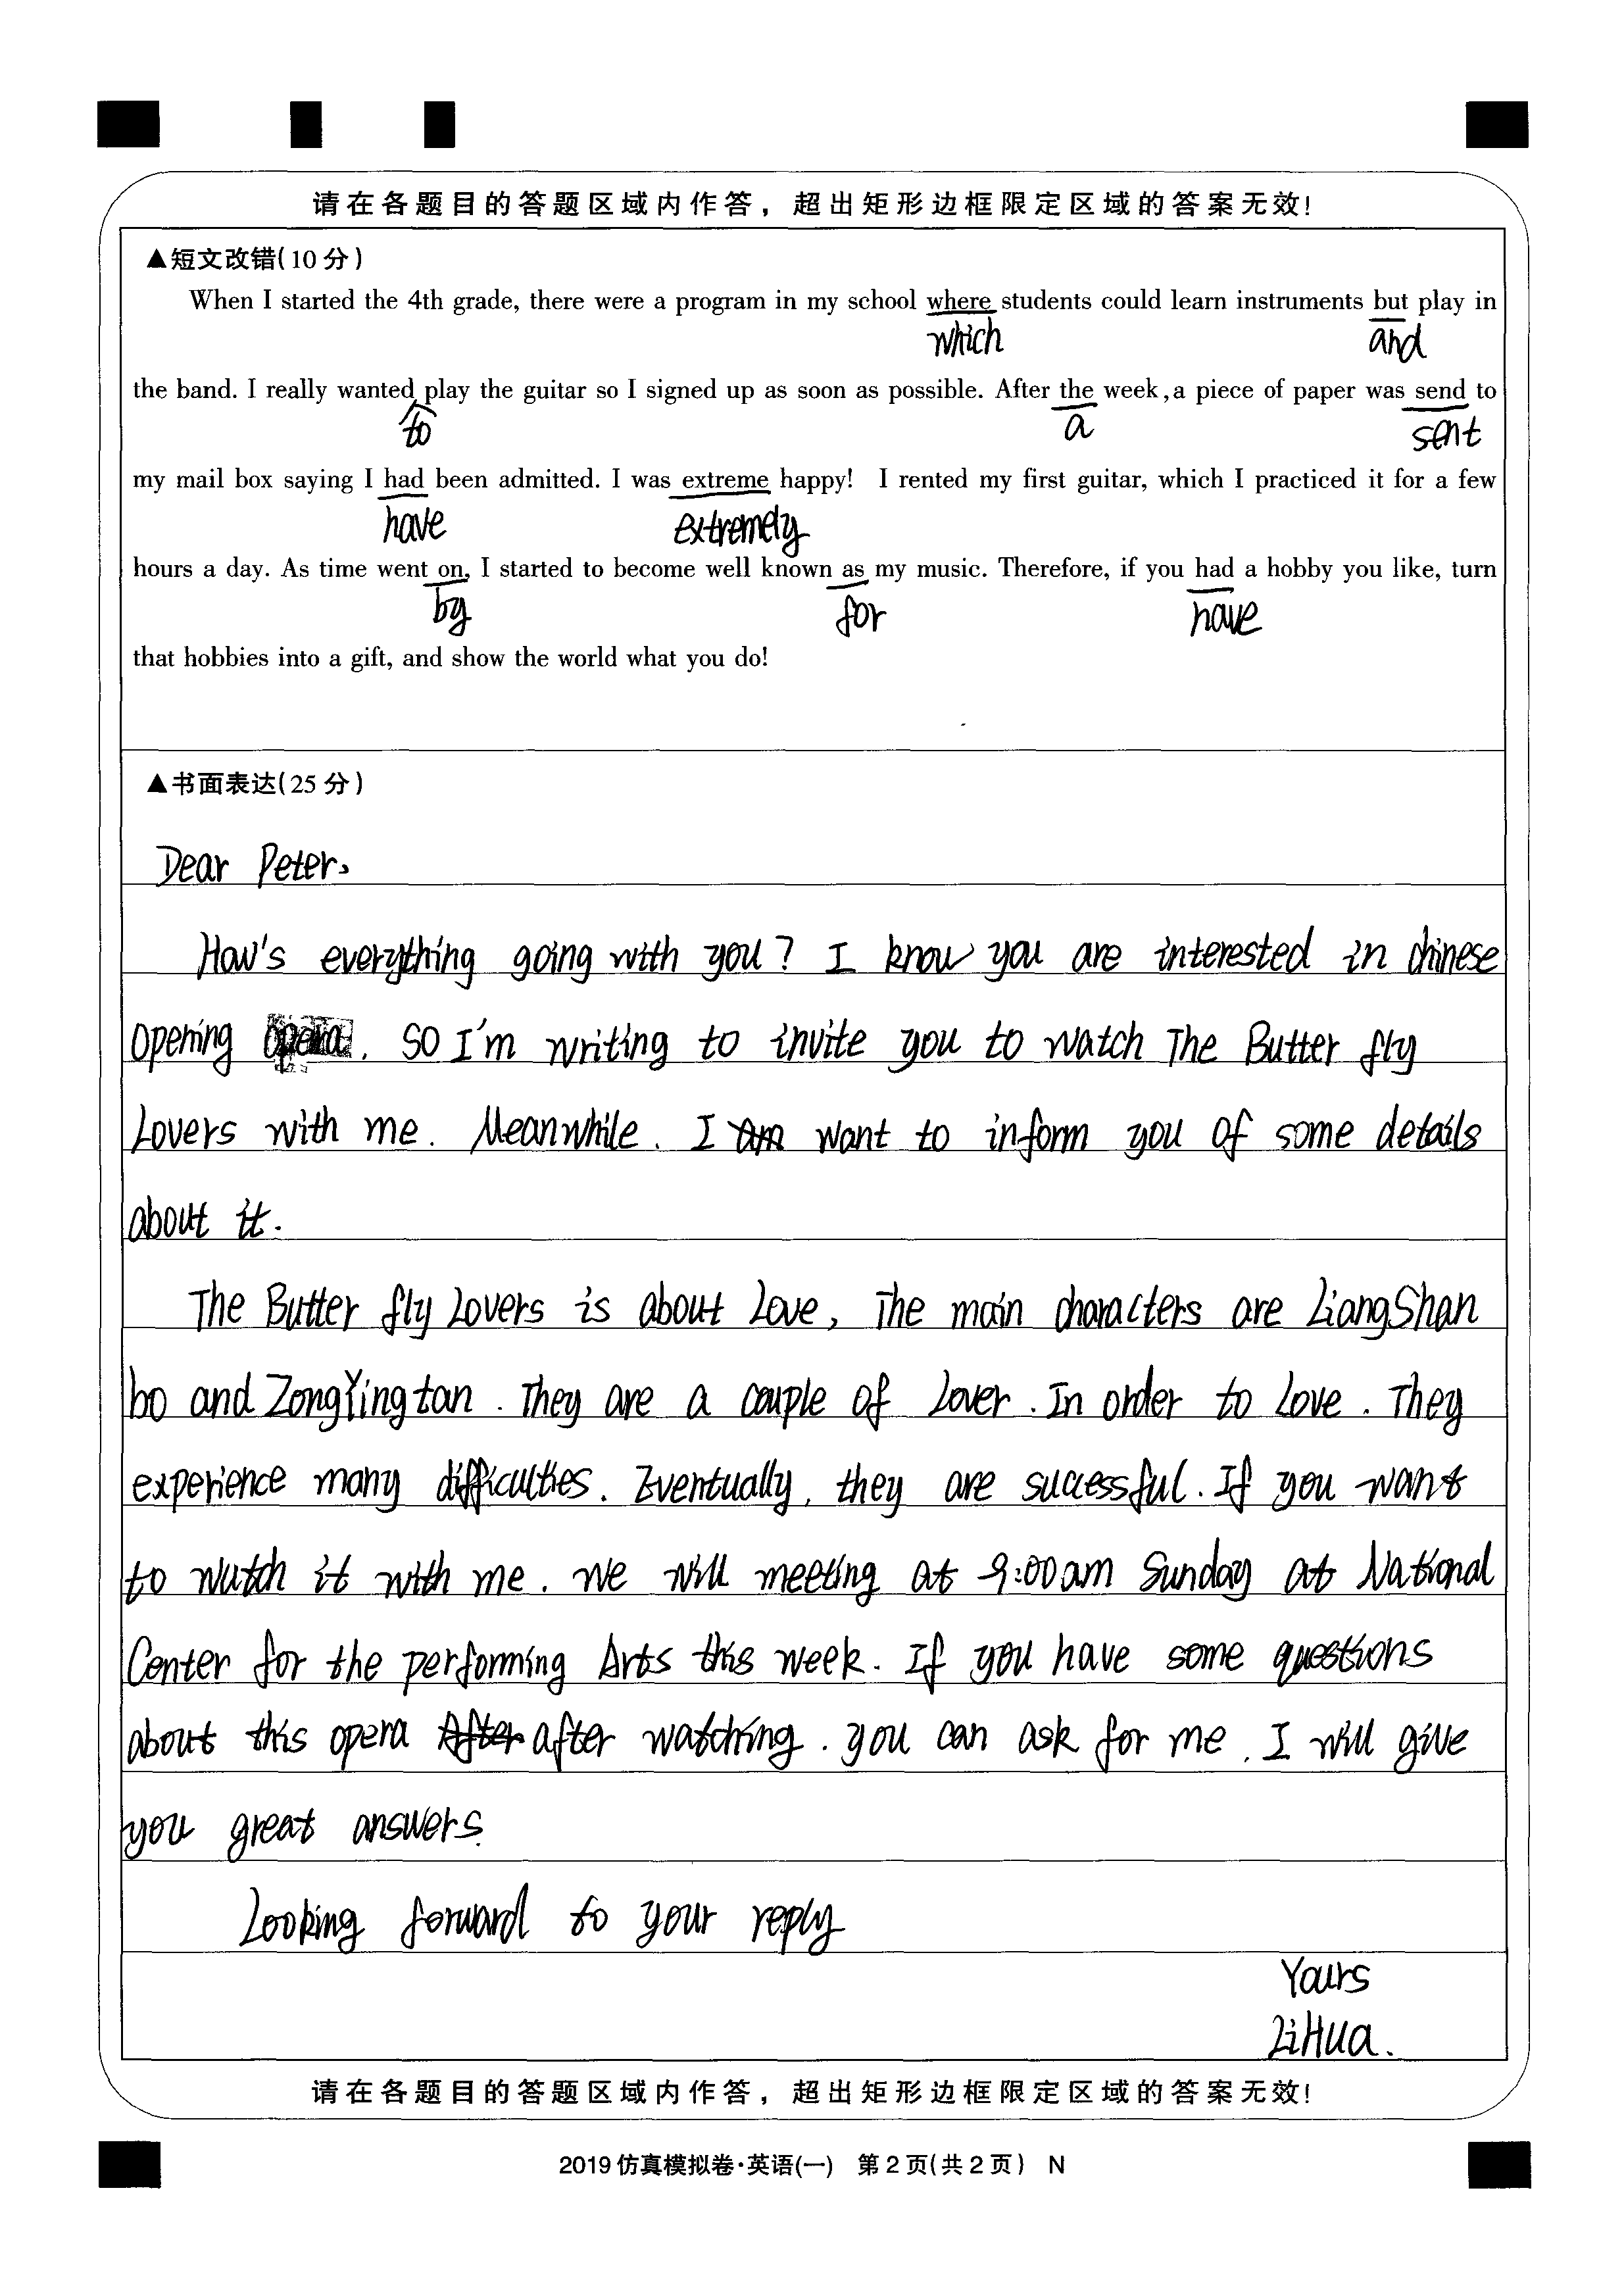 请在各题目的答题区域内作答，超出矩形边框限定区域的答案无效!
▲短文改错(10分)
When I started the 4th grade, there were a program in my school where students could learn instruments but play in
which and
the band. I really wanted play the guitar so I signed up as soon as possible. After the week, a piece of paper was send to
to a sent
my mail box saying I had been admitted. I was extreme happy! I rented my first guitar, which I practiced it for a few
have extremely
hours a day. As time went on, I started to become well known as my music. Therefore, if you had a hobby you like, turn
by for have
that hobbies into a gift, and show the world what you do!
▲书面表达(25分)
Dear Peter,
How's everything going with you? I know you are interested in chinese
opening opera. So I'm writing to invite you to watch The Butter fly
Lovers with me. Meanwhile. I am want to inform you of some details
about it.
The Butter fly Lovers is about Love, The main characters are LiangShan
bo and ZongYingtan. They are a couple of Lover. In order to Love. They
experience many difficulties. Eventually, they are successful. If you want
to watch it with me. we will meeting at 9:00am Sunday at National
Center for the performing Arts this week. If you have some questions
about this opera After after watching. you can ask for me. I will give
you great answers.
Looking forward to your reply
Yours
LiHua.
请在各题目的答题区域内作答，超出矩形边框限定区域的答案无效!
2019仿真模拟卷·英语(一) 第2页(共2页) N